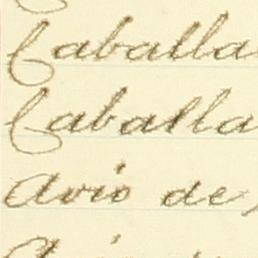 Caballa
Caballa
Avio de